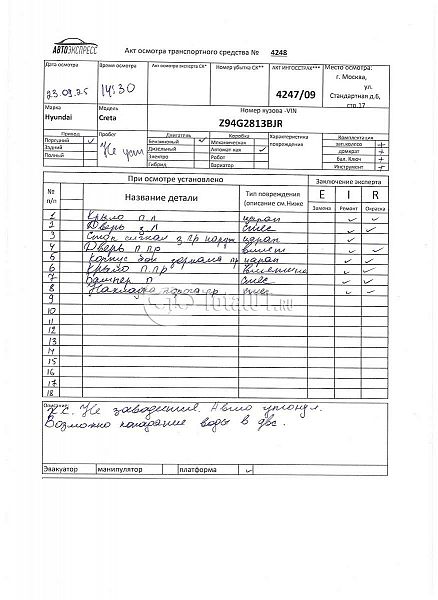 АВТОЭКСПРЕСС
Акт осмотра транспортного средства № 4248
Дата осмотра
23.09.25
Время осмотра
14:30
Акт осмотра эксперта СК*
Номер убытка СК**
АКТ ИНГОССТРАХ***
4247/09
Место осмотра:
г. Москва,
ул.
Стандартная д.6,
стр.17
Марка
Hyundai
Модель
Creta
Номер кузова -VIN
Z94G2813BJR
Привод
Передний ✓
Задний
Полный
Пробег
Двигатель
Бензиновый ✓
Дизельный
Электро
Гибрид
Коробка
Механическая
Автомат кая ✓
Робот
Вариатор
Характеристика
повреждения
Комплектация
зап.колесо +
домкрат +
бал. Ключ +
Инструмент +
При осмотре установлено
Заключение эксперта
№ п/п
Название детали
Тип повреждения
(описание см.Ниже
E I R
Замена Ремонт Окраска
1 Крыло п.л царап ✓ ✓
2 Дверь з л ✓ ✓
3 Стоп сигнал з пр наруж царап ✓
4 Дверь п пр ✓ ✓
5 Корпус зеркала пр царап ✓ ✓
6 Крыло п.пр ✓ ✓
7 Бампер п ✓ ✓
8 Накладка пр. ✓ ✓
9
10
11
12
13
14
15
16
17
18
TOTAL01.RU
Описание:
Не заводится. Авто утонул.
Возможно попадание воды в двс.
Эвакуатор манипулятор платформа ✓